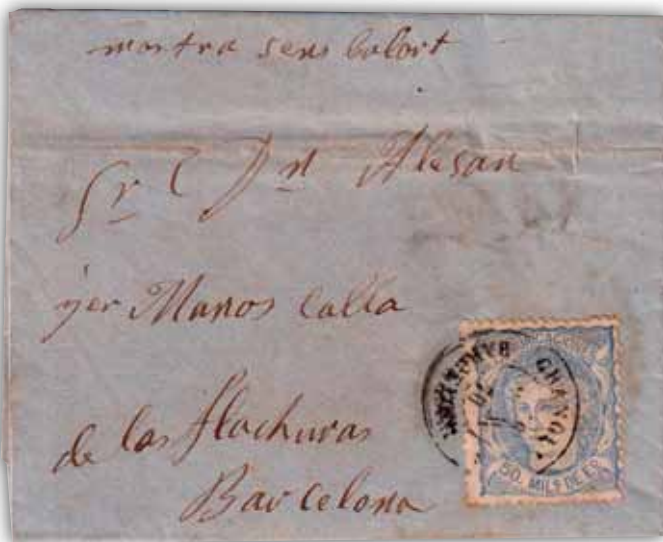 mostra sens balort
Sr. Dn Alesan
per Manos Calla
de las flachuras
Barcelona
50. MILS DE E